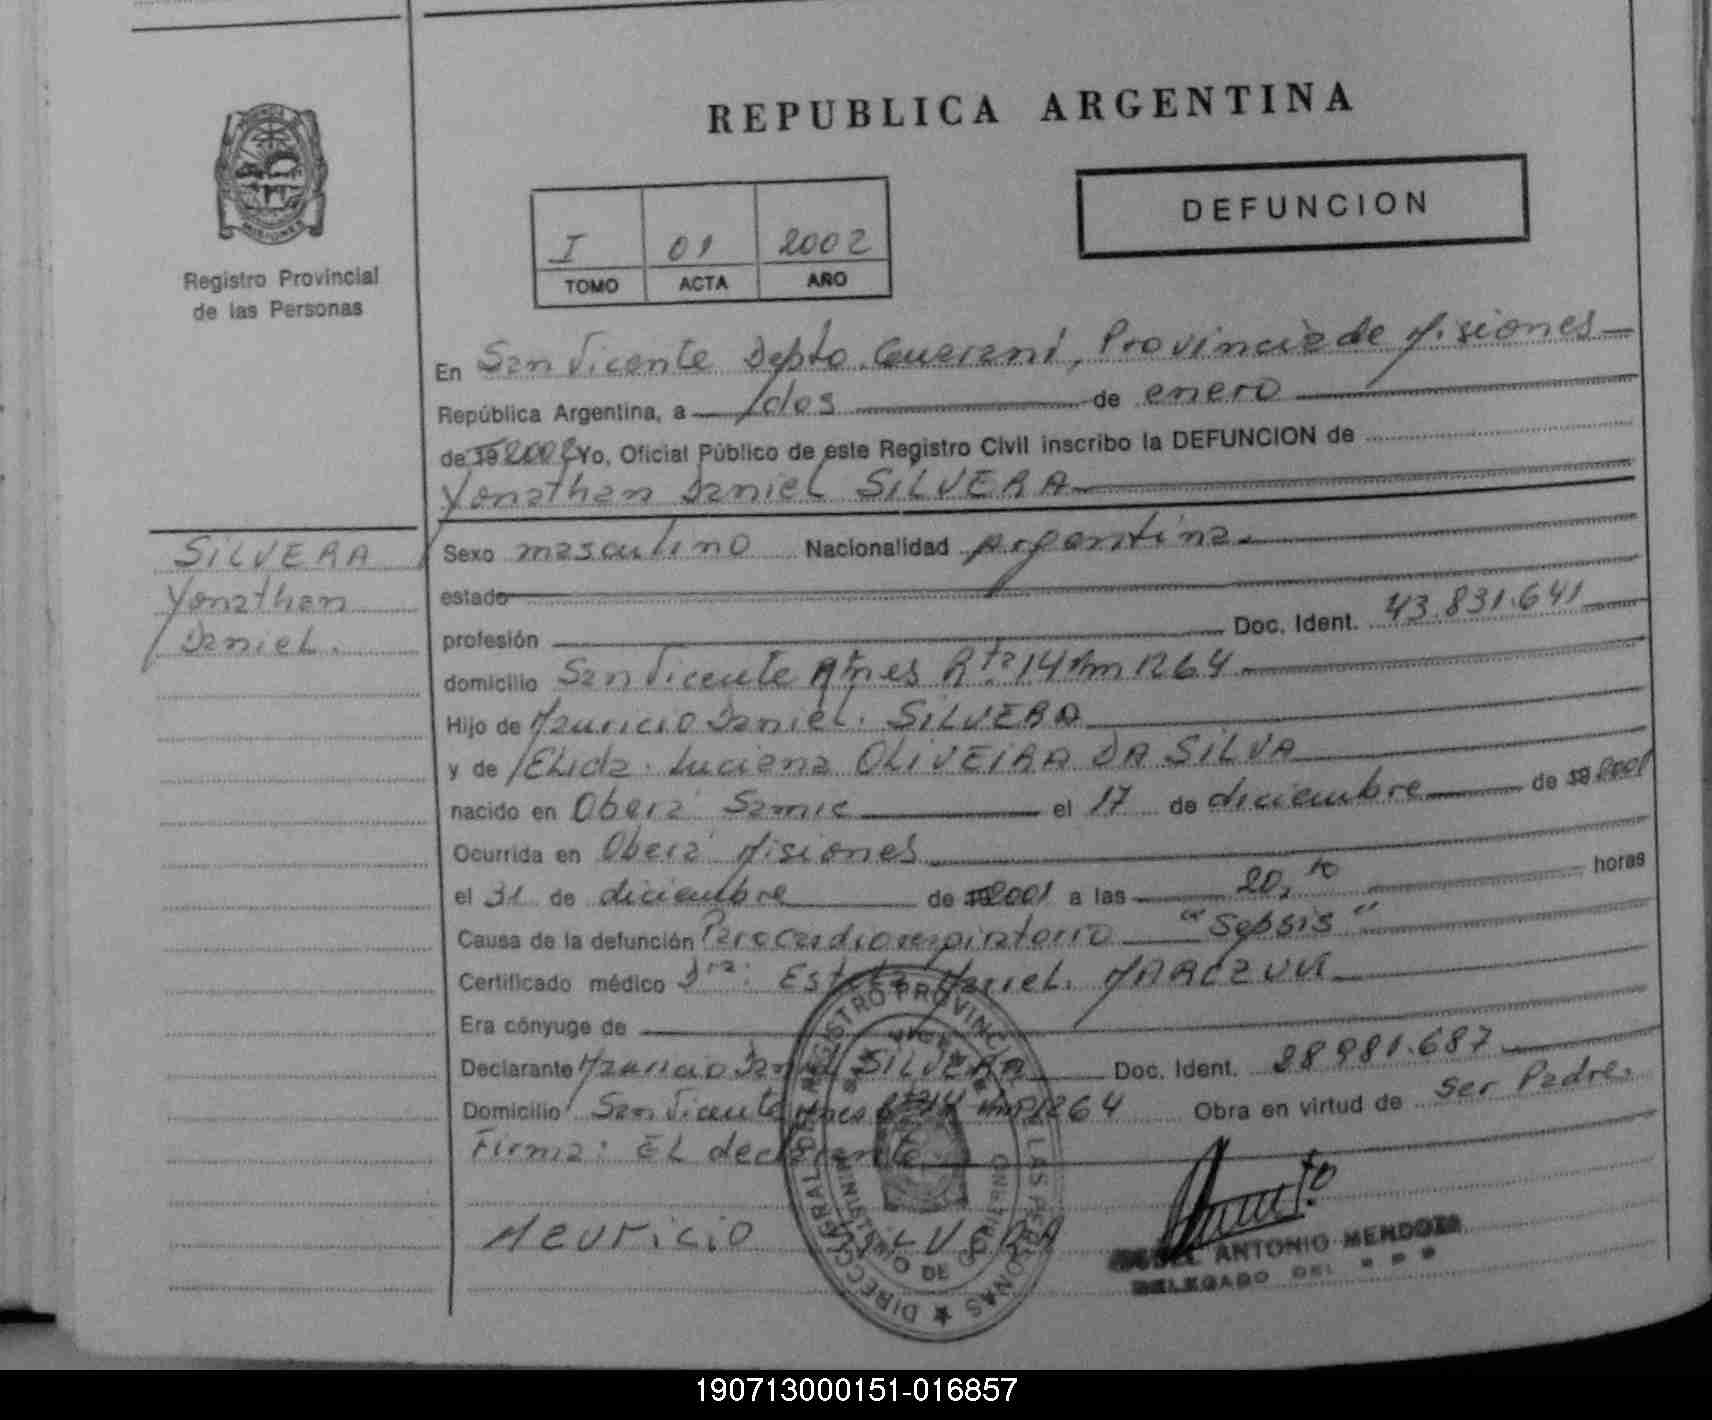 REPUBLICA ARGENTINA
MISIONES
Registro Provincial
de las Personas
DEFUNCION
I 01 2002
TOMO ACTA AÑO
En San Vicente Depto. Guaraní, Provincia de Misiones
República Argentina, a dos de enero
de 19 2002 Yo, Oficial Público de este Registro Civil inscribo la DEFUNCION de
Yonathan Daniel SILVERA
SILVERA
Yonathan
Daniel.
Sexo masculino Nacionalidad Argentina.
estado
profesión Doc. Ident. 43.831.641
domicilio San Vicente Mnes Rta 14 Km 1264
Hijo de Mauricio Daniel. SILVERA
y de Elida. Luciana OLIVEIRA DA SILVA
nacido en Oberá Samic el 17 de diciembre de 19 2001
Ocurrida en Oberá Misiones
el 31 de diciembre de 19 2001 a las 20,10 horas
Causa de la defunción Parocardiorespiratorio "Sepsis"
Certificado médico Dra: Mariel.
Era cónyuge de
Declarante Mauricio Daniel SILVERA Doc. Ident. 28981.687
Domicilio San Vicente Mnes Rta 14 Km 1264 Obra en virtud de ser Padre.
Firma: El declarante
Mauricio SILVERA
ANTONIO MENDOZA
DELEGADO DEL
DIRECC. GRAL. DEL REGISTRO PROVINCIAL DE LAS PERSONAS
SAN VICENTE
MINISTERIO DE GOBIERNO
190713000151-016857